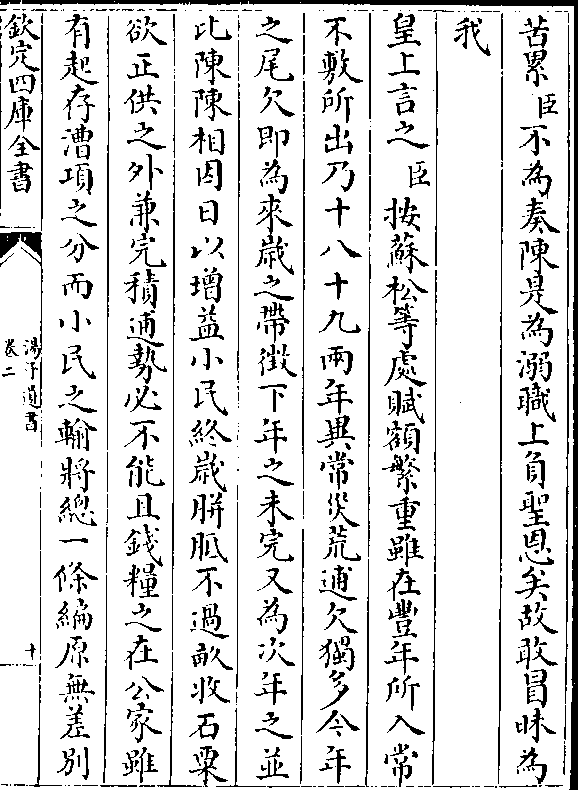 苦累臣不為奏陳是為溺職上負聖恩矣故敢冒昧為
我
皇上言之臣按蘇松等處賦額繁重雖在豐年所入常
不敷所出乃十八十九兩年異常災荒逋欠獨多今年
之尾欠即為來歲之帶徵下年之未完又為次年之並
比陳陳相因日以增益小民終歲胼胝不過畝收石粟
欲正供之外兼完積逋勢必不能且錢糧之在公家雖
有起存漕項之分而小民之輸將總一條編原無差別
欽定四庫全書
湯子遺書
卷二
十